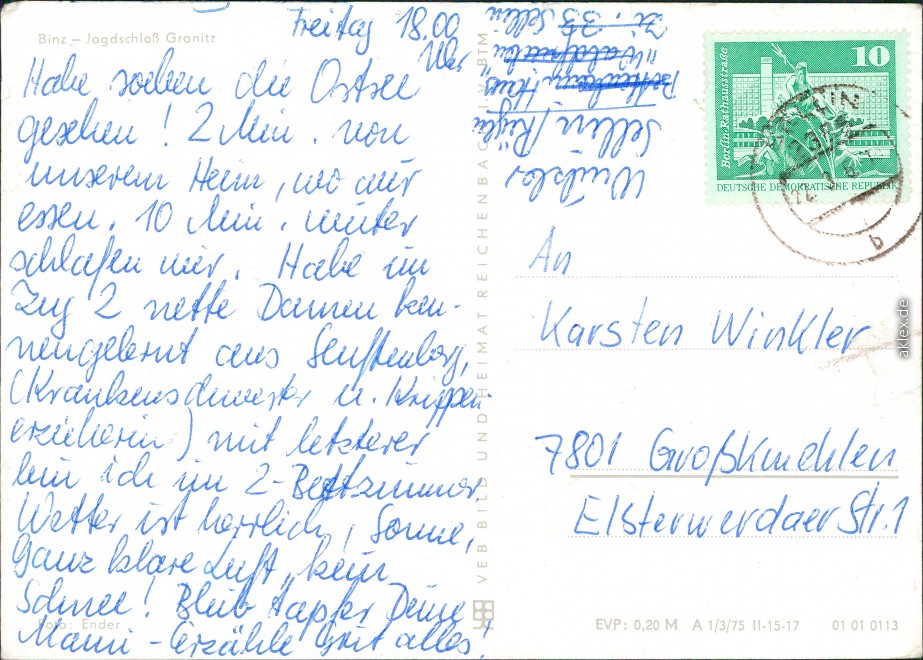 Binz – Jagdschloß Granitz
Freitag 18.00
Uhr
Habe soeben die Ostsee
gesehen! 2 Min. von
unserem Heim, wo wir
essen. 10 Min. weiter
schlafen wir. Habe im
Zug 2 nette Damen ken-
nengelernt aus Senftenberg,
(Krankenschwester u. Krippen-
erzieherin) mit letzterer
bin ich im 2-Bettzimmer.
Wetter ist herrlich, Sonne,
Ganz klare Luft, kein
Schnee! Bleib tapfer Deine
Mami - Erzähle Gut alles!
Foto: Ender
VEB BILD UND HEIMAT REICHENBACH I. V. BTM
Winkler
Sellin/Rügen
Haus
"Waldfrieden"
Zi. 33 Sellin
10
Berlin-Rathausstraße
DEUTSCHE DEMOKRATISCHE REPUBLIK
SELLIN
b
An
Karsten Winkler
7801 Großkmehlen
Elsterwerdaer Str. 1
EVP: 0,20 M A 1/3/75 II-15-17 01 01 0113
aklex.de